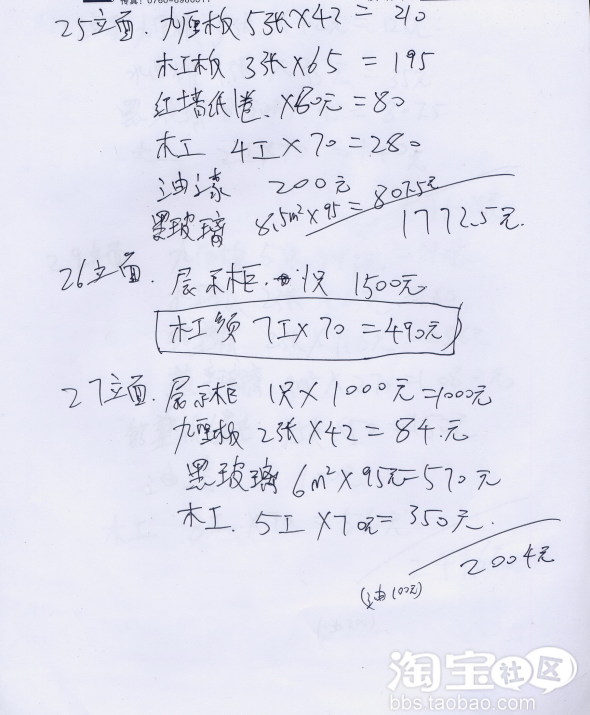 25立面. 九厘板 5张×42 = 210
木工板 3张×65 = 195
红墙纸1卷. ×80元=80
木工 4工×70=280
油漆 200元
黑玻璃 8.5m²×95=807.5元
1772.5元.
26立面. 展示柜. 1只 1500元
木工须 7工×70=490元
27立面. 展示柜 1只×1000元=1000元
九厘板 2张×42=84.元
黑玻璃 6m²×95元=570元
木工. 5工×70元=350元.
2004元
(油100元)
淘宝社区
bbs.taobao.com